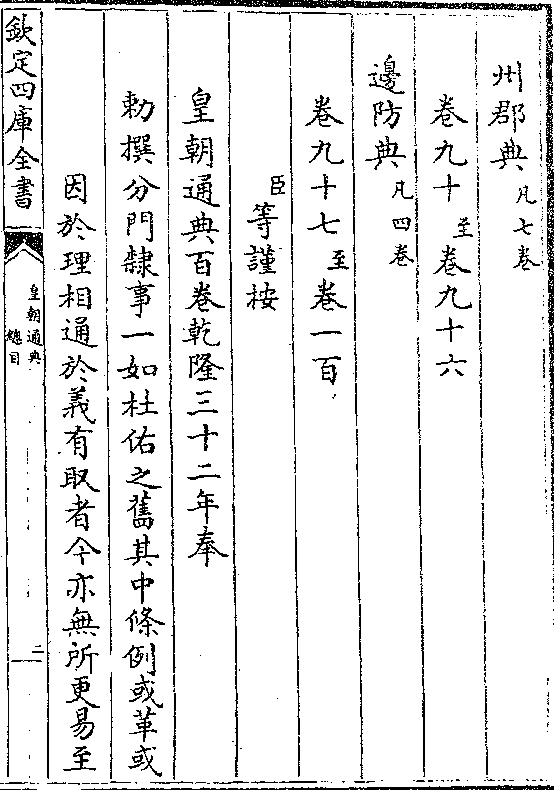 州郡典凡七卷
卷九十至卷九十六
邊防典凡四卷
卷九十七至卷一百
臣等謹桉
皇朝通典百卷乾隆三十二年奉
勅撰分門隸事一如杜佑之舊其中條例或革或
因於理相通於義有取者今亦無所更易至
欽定四庫全書
皇朝通典
總目
二